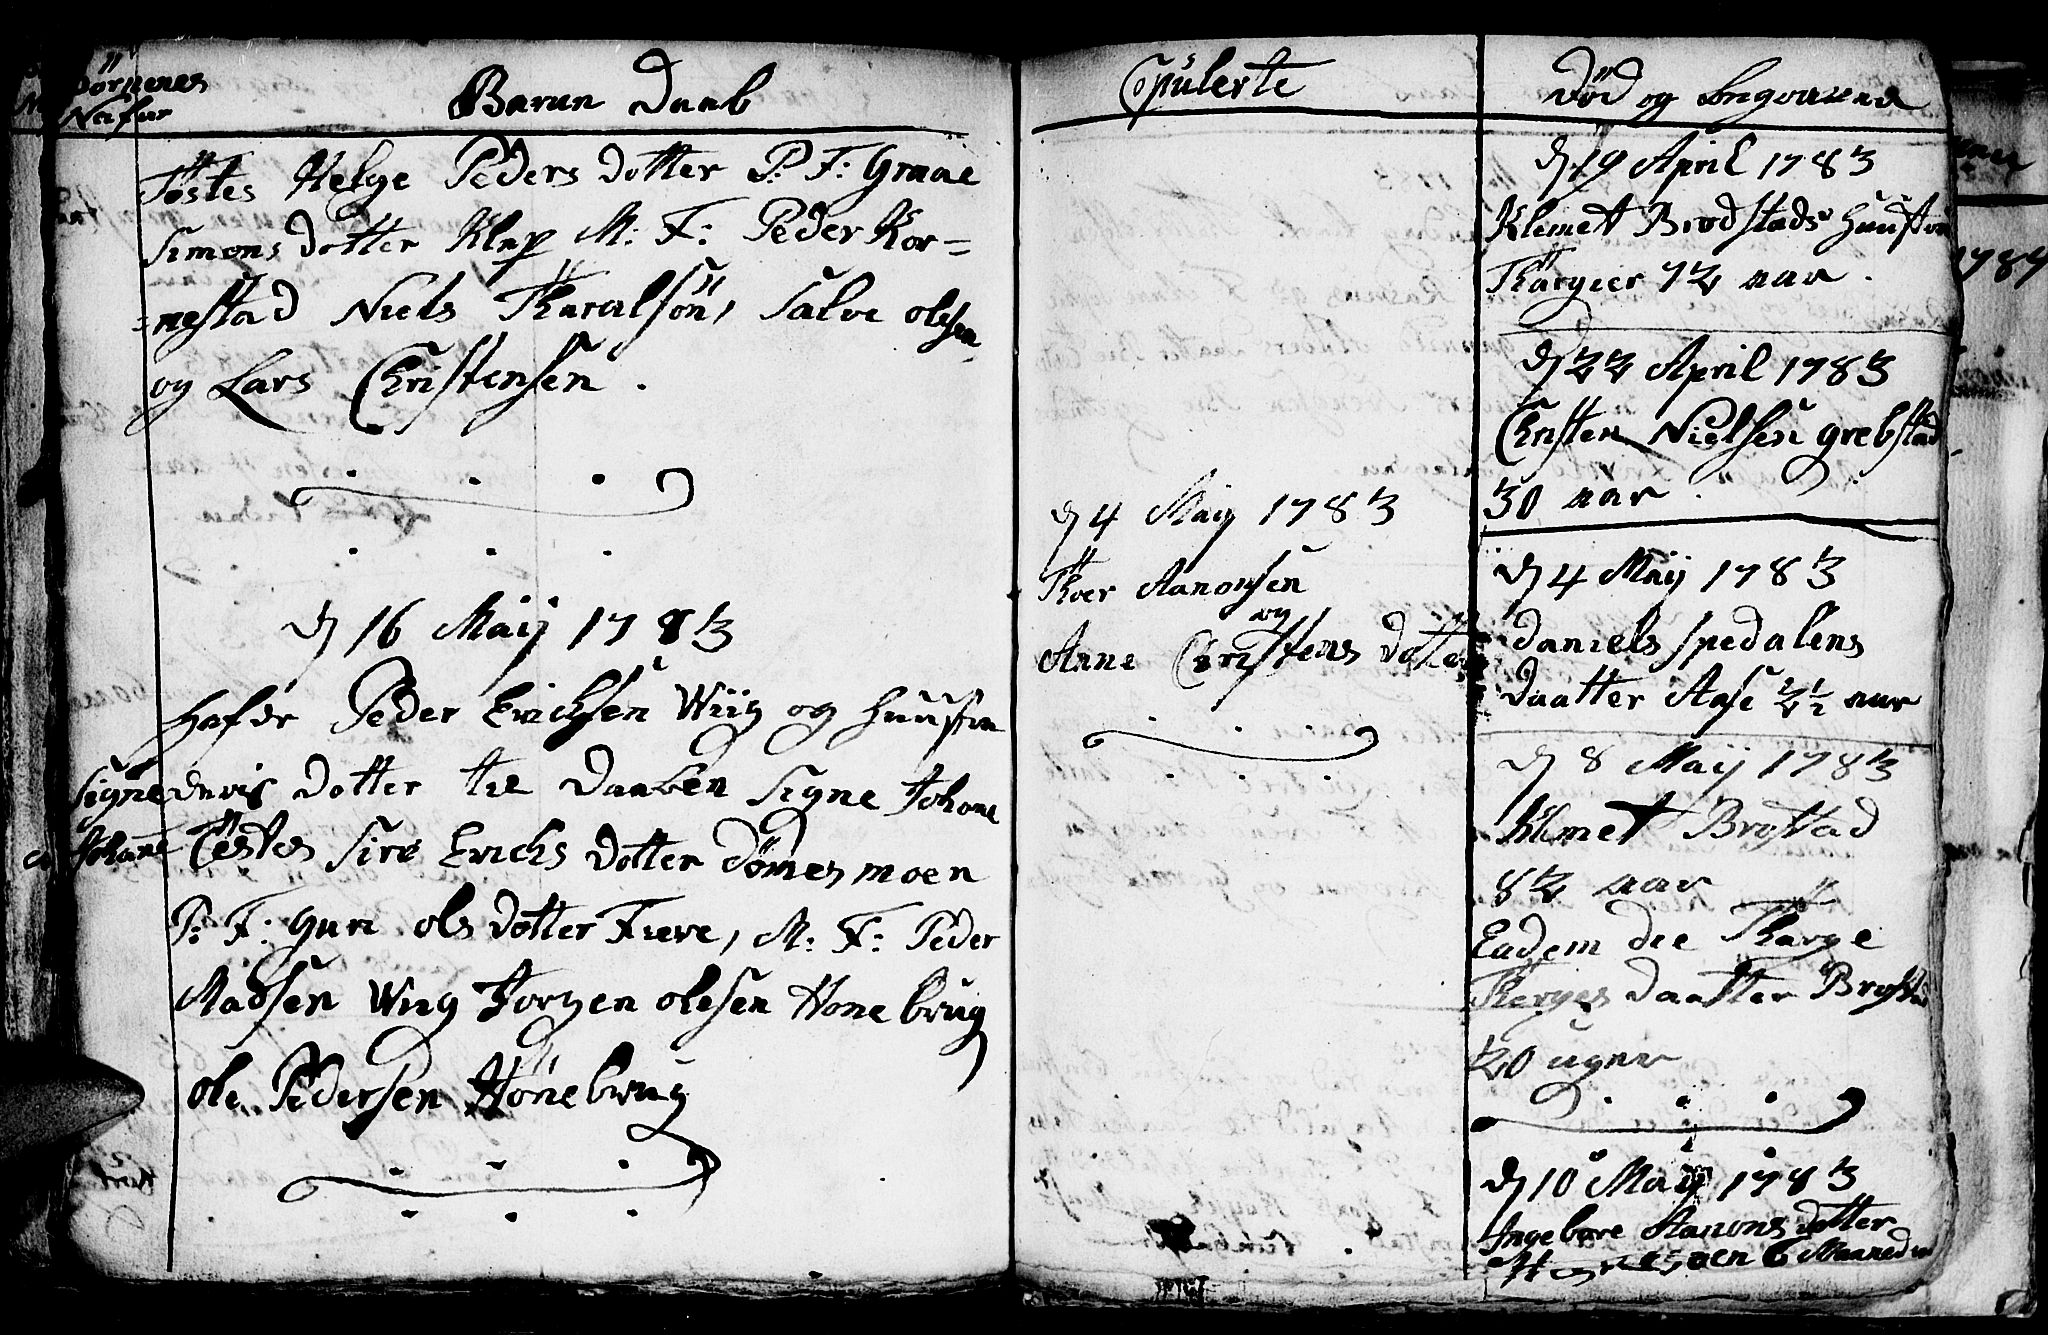 Börnenes
Nafne
Barne Daab
Föstes Helge Peders dotter P: F: Graae
Simons dotter Klep M: F: Peder Kor=
=nestad Niels Tharalsön, Salve olesen,
og Lars Christensen.
d 16 Maij 1783
Hafer Peder Erichsen Wiig og Huustru
Signe Johane
dotter til Daaben Signe Johane
Töstes Siro Erichs dotter Dömesmoen
P: F: Guri ols dotter Fieve, M: F: Peder
Madsen Wiig Jorgen olesen Hönebrug
ole Pedersen Hönebrug
Copulerte
d 4 Maij 1783
Thoer Aanonsen
og
Anne Christens Dotter
Död og
d 19 April 1783
Klemet Brodstads Huustru
Thargier 72 aar.
d 22 April 1783
Christen Nielsen grebstad
30 aar.
d 4 Maij 1783
Daniels Spedalens
Daatter Aase 2½ aar
d 8 Maij 1783
Klemet Brostad
82 aar
Eadem die Tharge
Terges Daatter Brostad
20 uger
d 10 Maij 1783
Ingebore Aanons dotter
6 Maaneder
1784